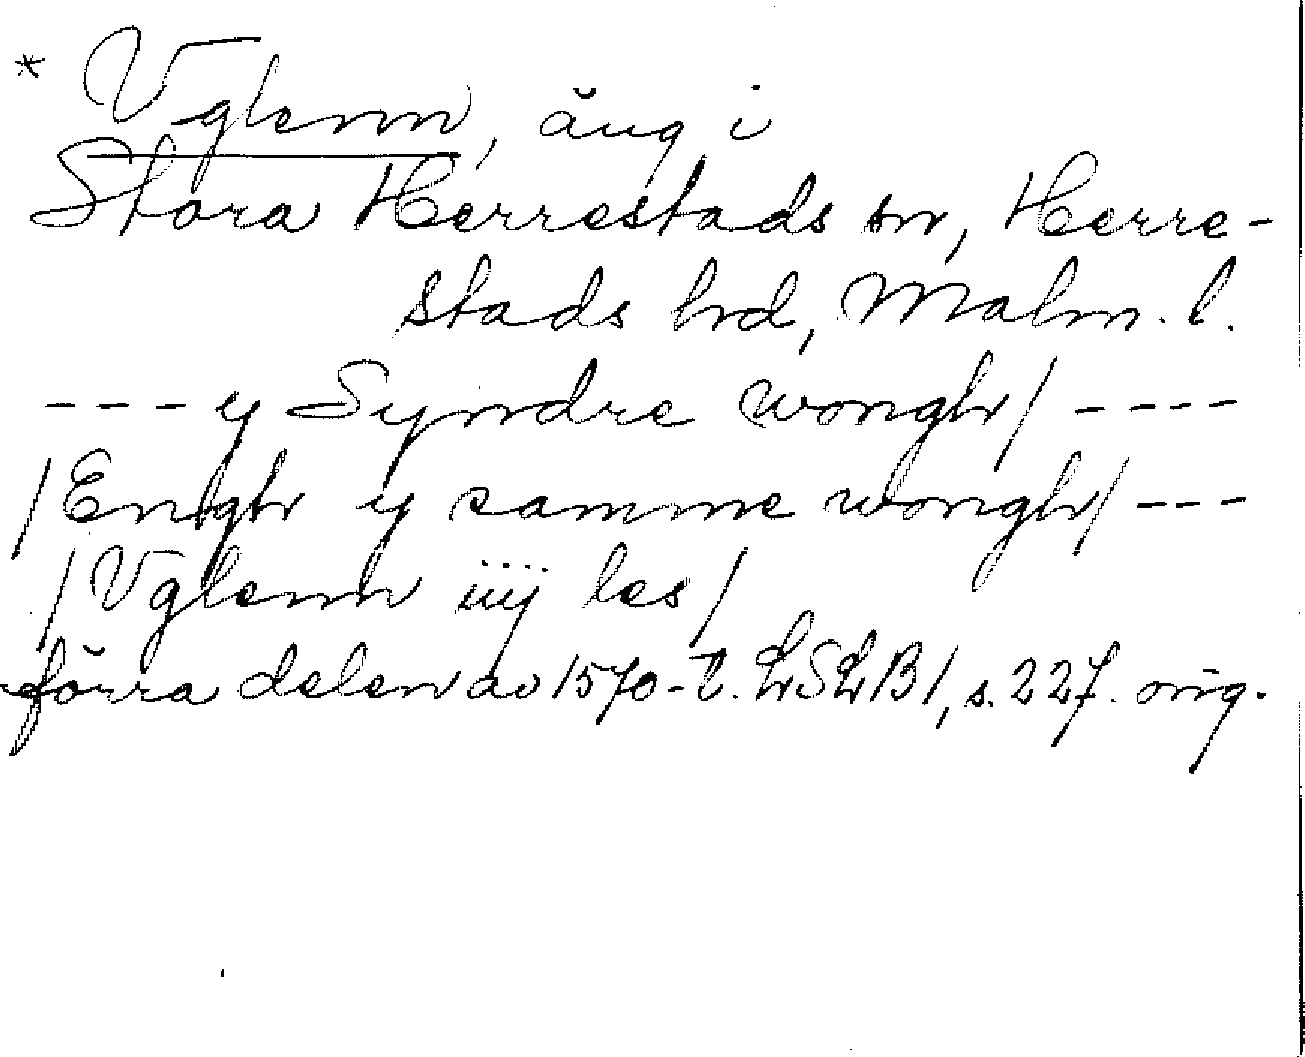 * Vglenn, äng i
Stora Herrestads sn, Herre-
stads hd, Malm. l.
--- y Syndre wongh/ ----
/Engh y samme wongh/ ---
/Vglenn iiij les/
förra delen av 1570-t. LSLB1, s. 227. orig.